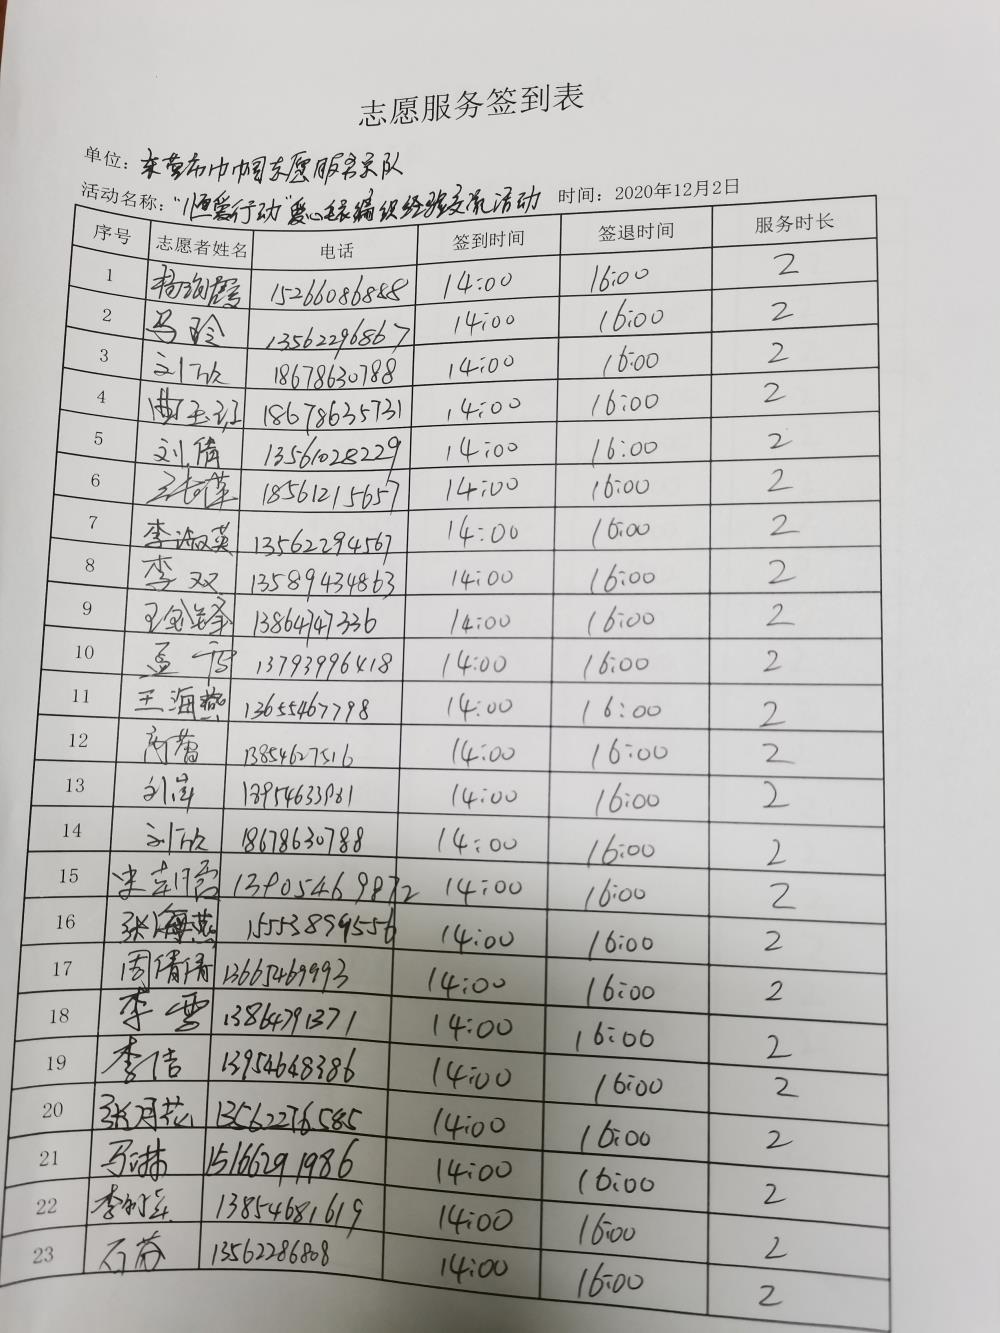 志愿服务签到表
单位：东营市巾帼志愿服务总队
活动名称："恒爱行动"爱心毛线编织经验交流活动 时间：2020年12月2日
序号 志愿者姓名 电话 签到时间 签退时间 服务时长
1 15266086888 14:00 16:00 2
2 马玲 13562296867 14:00 16:00 2
3 刘欣 18678630788 14:00 16:00 2
4 18678635731 14:00 16:00 2
5 刘倩 13561028229 14:00 16:00 2
6 18561215657 14:00 16:00 2
7 李淑英 13562294567 14:00 16:00 2
8 李双 13589434863 14:00 16:00 2
9 13864747336 14:00 16:00 2
10 13793996418 14:00 16:00 2
11 王海燕 13655467798 14:00 16:00 2
12 13854627516 14:00 16:00 2
13 14:00 16:00 2
14 刘欣 18678630788 14:00 16:00 2
15 13905469872 14:00 16:00 2
16 张海燕 15553899556 14:00 16:00 2
17 周倩倩 13665469993 14:00 16:00 2
18 李雪 13864791371 14:00 16:00 2
19 李洁 13954648386 14:00 16:00 2
20 13562276585 14:00 16:00 2
21 马琳 15166291986 14:00 16:00 2
22 13854681619 14:00 16:00 2
23 13562286808 14:00 16:00 2